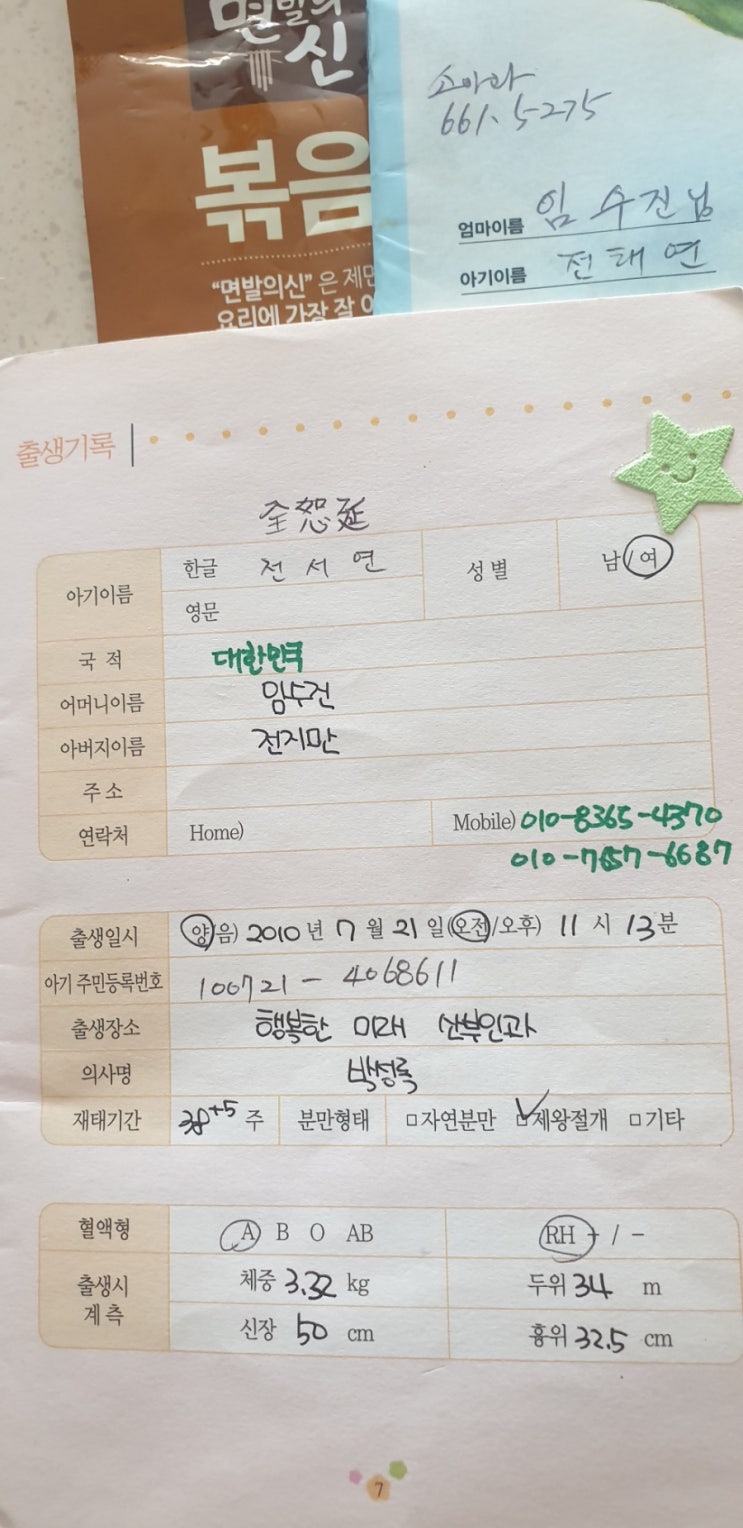 면발의
신
볶음
"면발의신"은 제면
요리에 가장 잘 어
소아과
661.5275
엄마이름 임수진님
아기이름 전태연
출생기록
全恕延
아기이름 한글 전서연 성별 남/여
영문
국적 대한민국
어머니이름 임수진
아버지이름 전지만
주소
연락처 Home) Mobile) 010-8365-4370
010-7657-6687
출생일시 양/음) 2010년 7월 21일(오전/오후) 11시 13분
아기 주민등록번호 100721-4068611
출생장소 행복한 미래 산부인과
의사명 박성룩
재태기간 38+5 주 분만형태 □자연분만 ☑제왕절개 □기타
혈액형 A B O AB RH + / -
출생시 계측 체중 3.32 kg 두위 34 m
신장 50 cm 흉위 32.5 cm
7